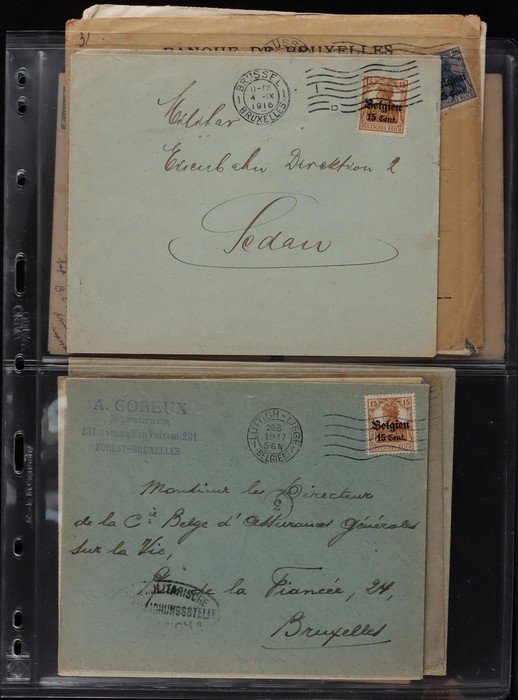 31
BANQUE DE BRUXELLES
BRÜSSEL
11-12
4 -IX
1916
BRUXELLES
1 1
15 15
Belgien
15 Cent.
DEUTSCHES REICH
Militär
Eisenbahn Direktion 2
Sedan
A. GOREUX
231, Avenue Van Volxem, 231
FOREST-BRUXELLES
LÜTTICH-LIÉGE
1917
5-6 N
(BELGIEN)
15 15
Belgien
15 Cent.
Monsieur le Directeur
2
de la Cie Belge d'Assurances Générales
sur la Vie,
de la Fiancée, 24,
Bruxelles
MILITARISCHE